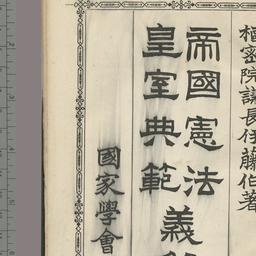 樞密院議長伊藤伯著
帝國憲法
皇室典範義
國家學會